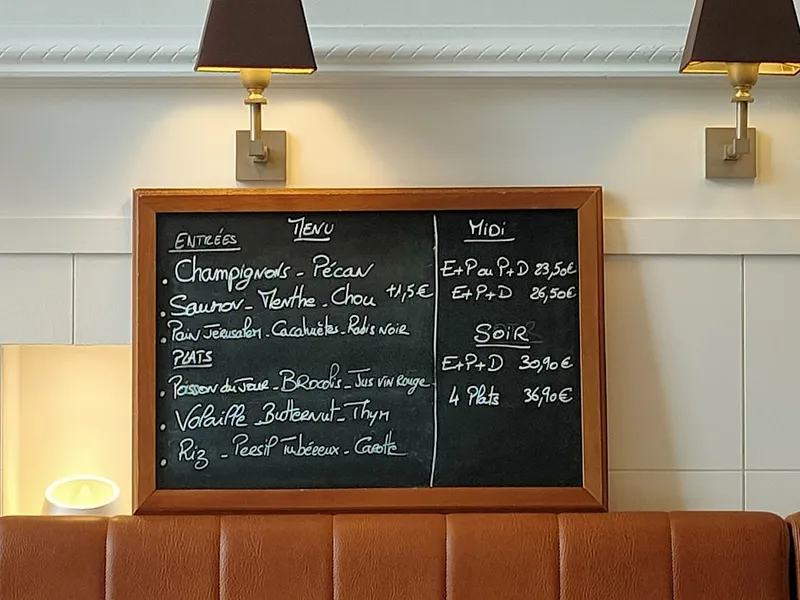 MENU
ENTRÉES
. Champignons - Pécan
. Saumon - Menthe - Chou +1,5€
. Pain Jerusalem - Cacahuètes - Radis Noir
PLATS
. Poisson du Jour - Brocolis - Jus vin Rouge
. Volaille Butternut - Thym
. Riz - Persil Tubéreux - Carotte
MiDi
E+P ou P+D 23,50€
E+P+D 26,50€
SOiR
E+P+D 30,90€
4 Plats 36,90€